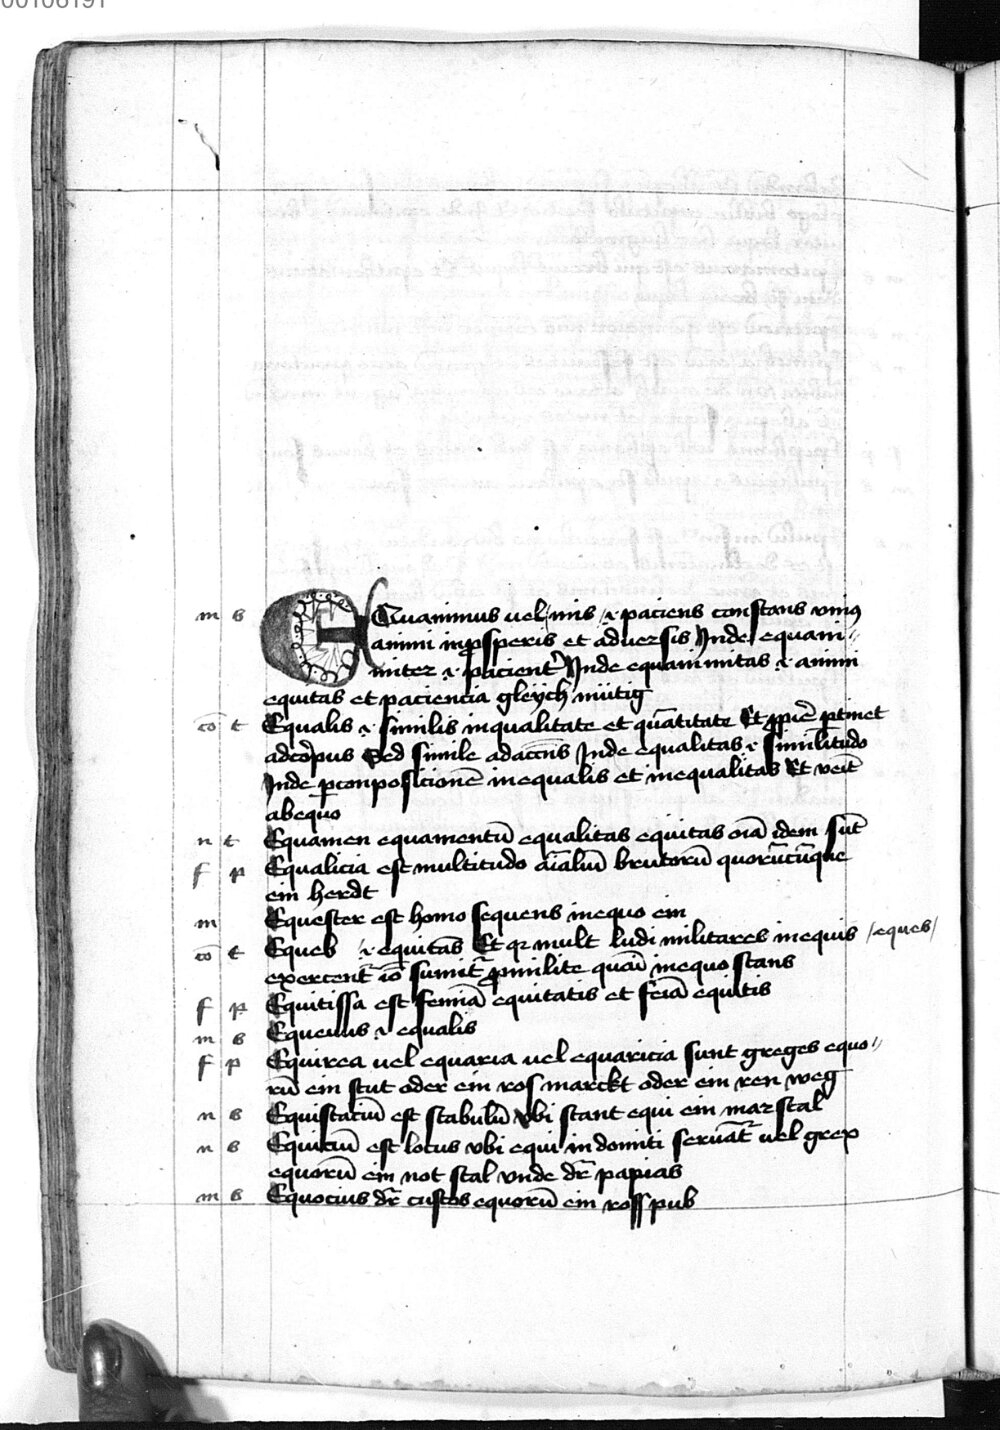 00106191
m s EQuanimus uel mis .i. paciens constans vniꝰ
animi inꝓsperis et aduersis Inde equani
miter .i. pacient̾ Inde equanimitas .i. animi
equitas et paciencia gleÿch mütig
cō t Equalis .i. similis inqualitate et quātitate Et ꝓpͥe ꝑtinet
adcorpus Sed simile adaccn̄s Inde equalitas .i. similitudo
Inde ꝑconposicionē inequalis et inequalitas Et veīt
abequo
n t Equamen equamentū equalitas equitas oīa idem sūt
f p Equalicia est multitudo aīaliū brutorū quorūcūque
ein herdt
m Equester est homo sequens inequo ein
cō t Eques .i. equitās Et qꝛ mult ludi militares inequis /eques/
exercent᷑ iō sumit᷑ ꝓmilite quāuī inequo stans
f p Equitissa est femīa equitatis et feīa equitis
m s Equenus .i. equalis
f p Equirea uel equaria uel equaricia sunt greges equo
rū ein stut oder ein ros marckt oder ein ren weg
n s Equistaciū est stabulū vbi stant equi ein marstal
n s Equiciū est locus vbi equi indomiti seruāt᷑ uel grex
equorū ein not stal vnde dr̄ papias
m s Equocius dr̄ custos equorū ein ross pub